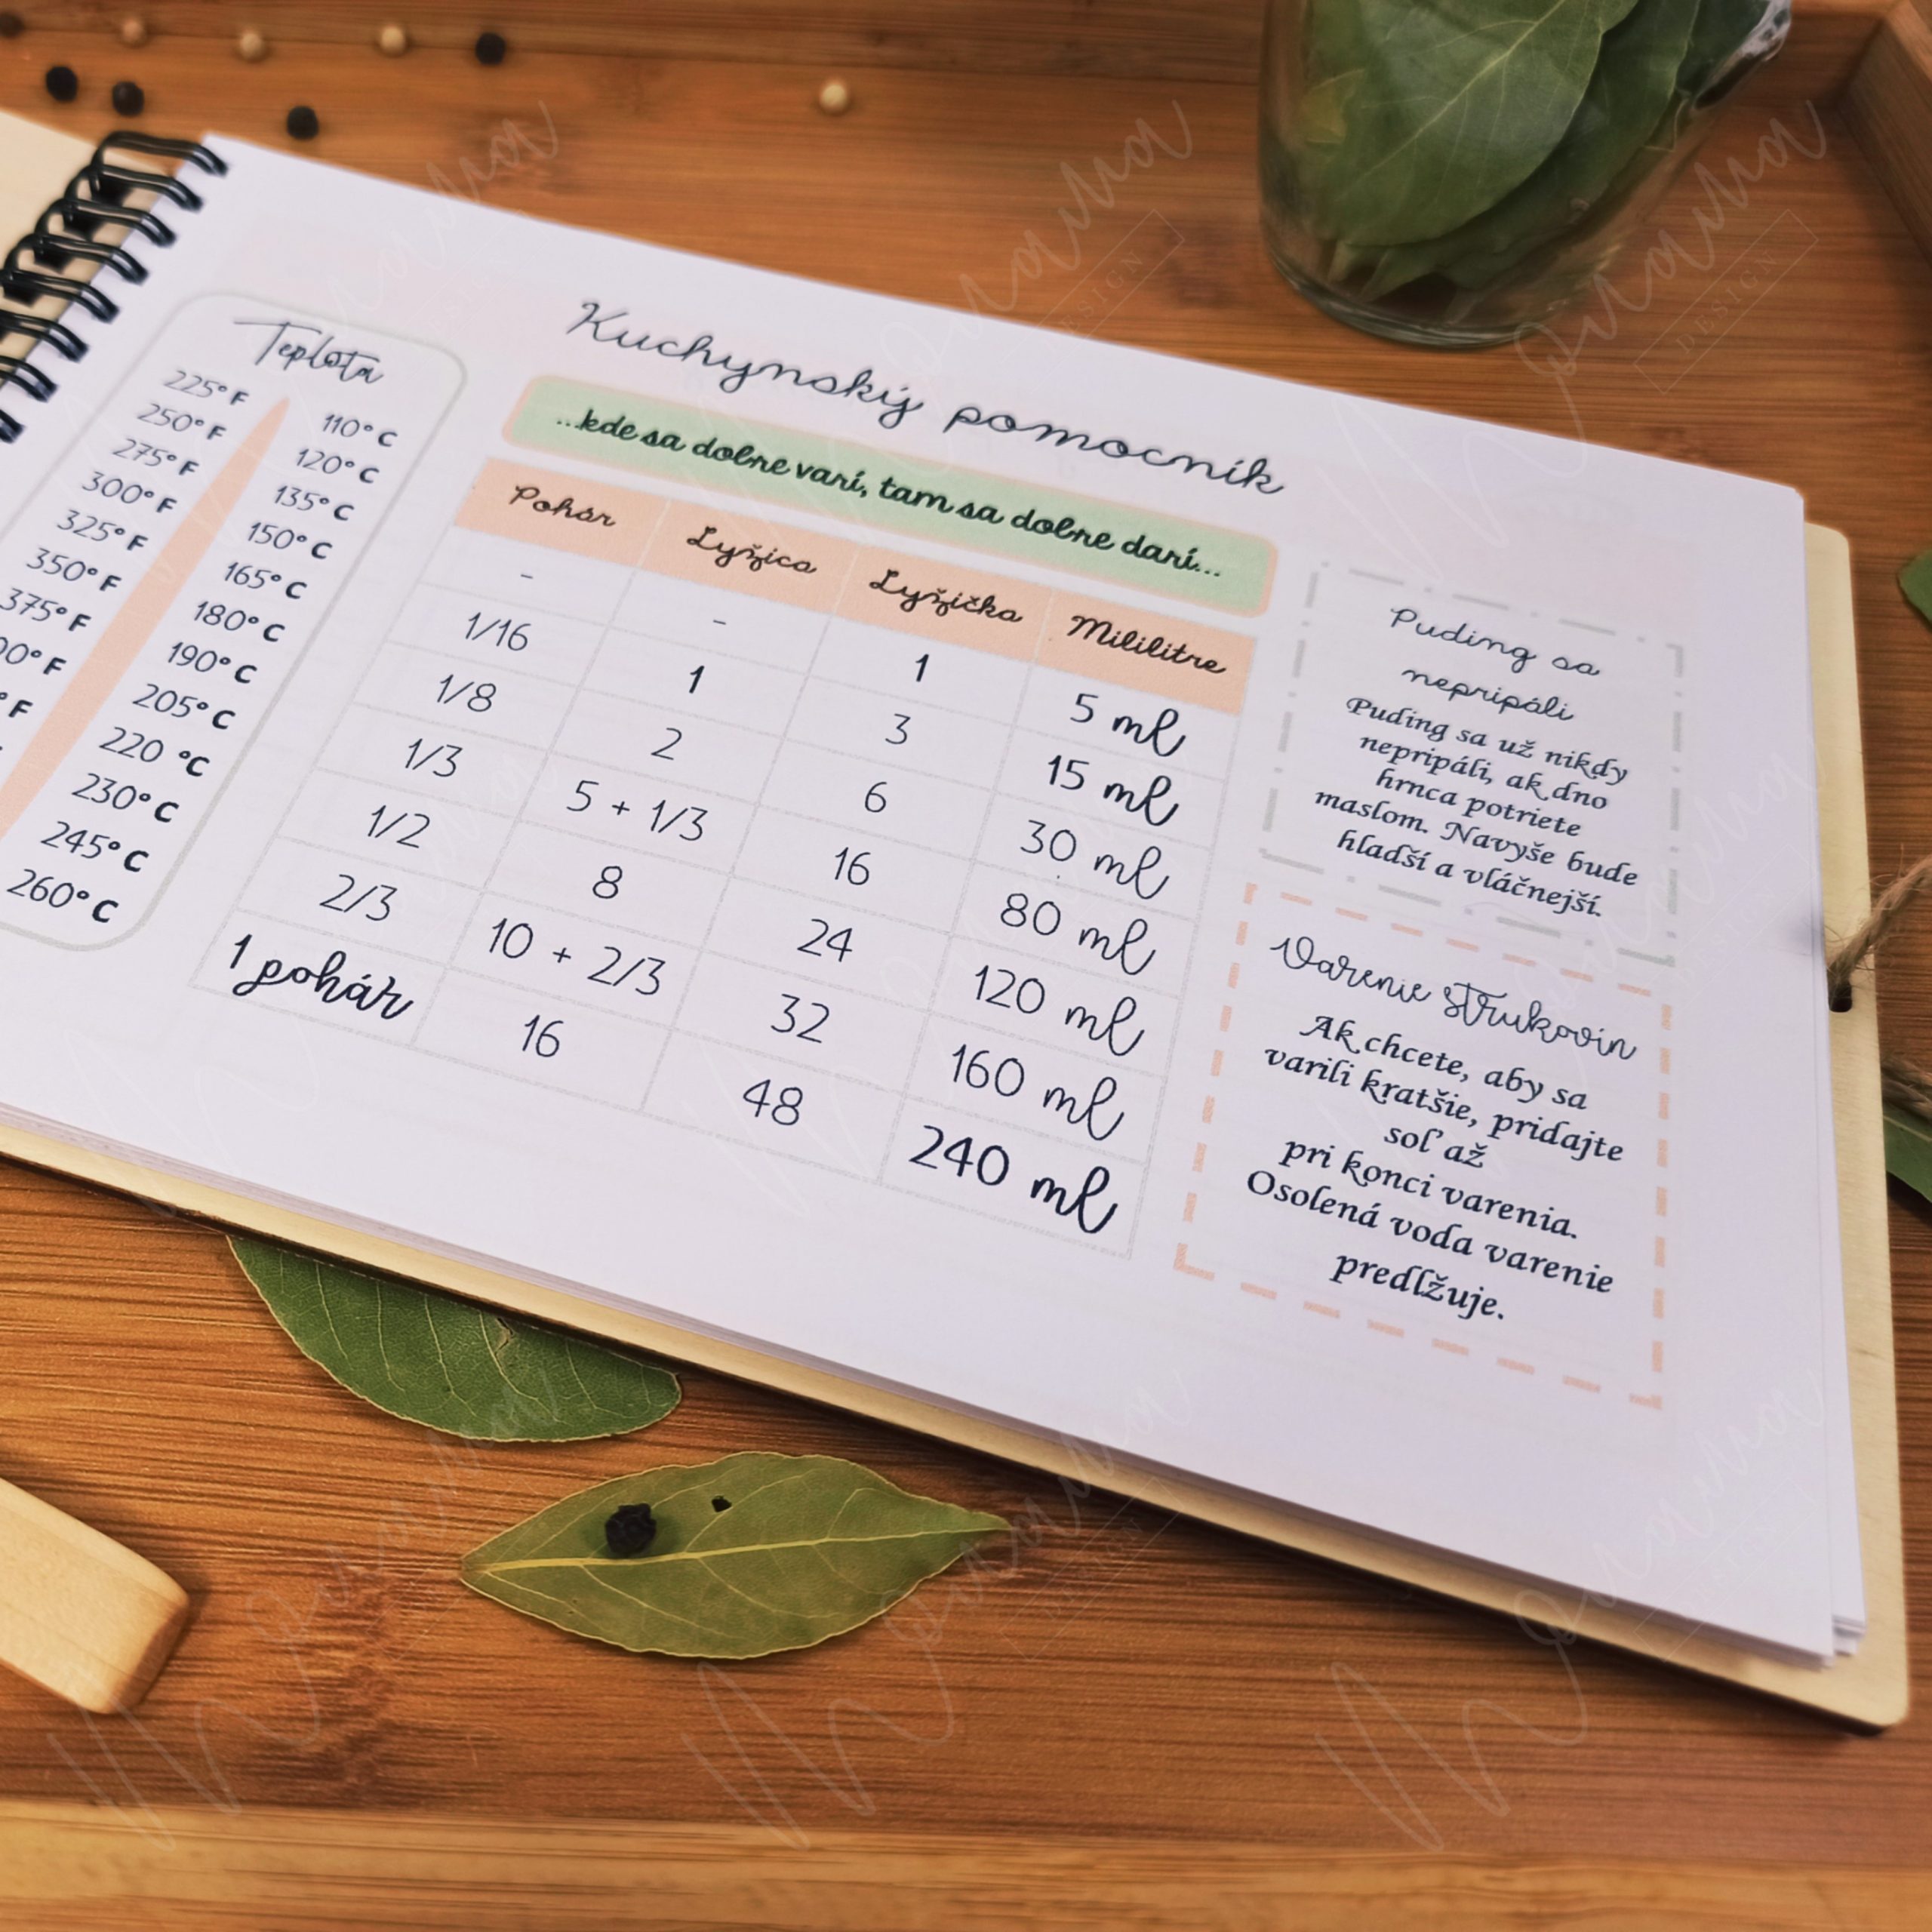 Kuchynský pomocník
...kde sa dobre varí, tam sa dobre darí...
Teplota
225°F 110°C
250°F 120°C
275°F 135°C
300°F 150°C
325°F 165°C
350°F 180°C
375°F 190°C
00°F 205°C
°F 220 °C
230°C
245°C
260°C
Pohár Lyžica Lyžička Mililitre
- - 1 5 ml
1/16 1 3 15 ml
1/8 2 6 30 ml
1/3 5 + 1/3 16 80 ml
1/2 8 24 120 ml
2/3 10 + 2/3 32 160 ml
1 pohár 16 48 240 ml
Puding sa
nepripáli
Puding sa už nikdy
nepripáli, ak dno
hrnca potriete
maslom. Navyše bude
hladší a vláčnejší.
Varenie strukovín
Ak chcete, aby sa
varili kratšie, pridajte
soľ až
pri konci varenia.
Osolená voda varenie
predlžuje.
DESIGN